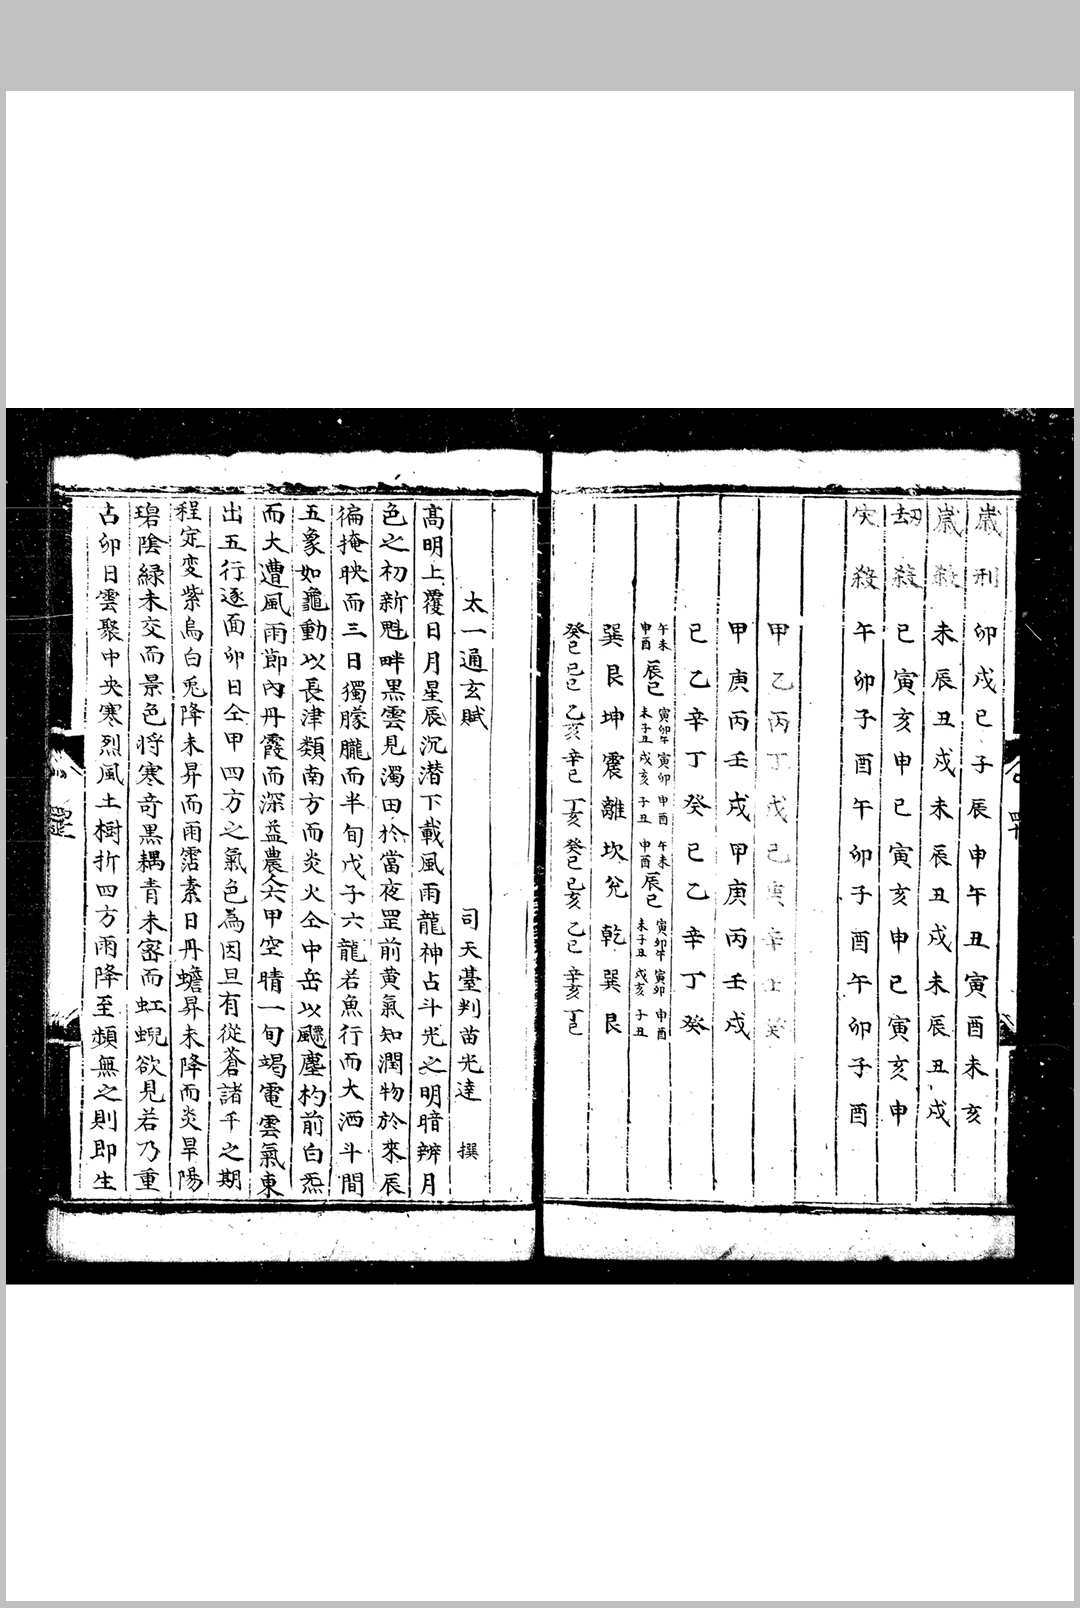 歲刑 卯戌巳子辰申午丑寅酉未亥
歲殺 未辰丑戌未辰丑戌未辰丑戌
劫殺 巳寅亥申巳寅亥申巳寅亥申
灾殺 午卯子酉午卯子酉午卯子酉
甲乙丙丁戊己庚辛壬癸
甲庚丙壬戌甲庚丙壬戌
巳乙辛丁癸巳乙辛丁癸
午未申酉 辰巳 寅卯午未子丑 寅卯戌亥 申酉子丑 午未申酉 辰巳 寅卯午未子丑 寅卯戌亥 申酉子丑
巽艮坤震離坎兌乾巽艮
癸巳 己巳 乙亥 辛巳 丁亥 癸巳 己亥 乙巳 辛亥 丁巳
太一通玄賦 司天臺判苗光達 撰
高明上覆日月星辰沉潜下載風雨龍神占斗光之明暗辨月
色之初新魁畔黒雲見濁田於當夜罡前黄氣知潤物於來辰
徧掩映而三日獨朦朧而半旬戊子六龍若魚行而大洒斗間
五象如龜動以長津類南方而炎火仝中岳以颸塵杓前白炁
而大遭風雨節內丹霞而深益農人六甲空晴一旬竭電雲氣東
出五行逐面卯日仝甲四方之氣色為因旦有從蒼諸千之期
程定变紫烏白兎降未昇而雨霑素日丹蟾昇未降而炎旱陽
碧陰緑未交而景色将寒竒黒耦青未密而虹蜺欲見若乃重
占卯日雲聚中央寒烈風土樹折四方雨降至頻無之則即生